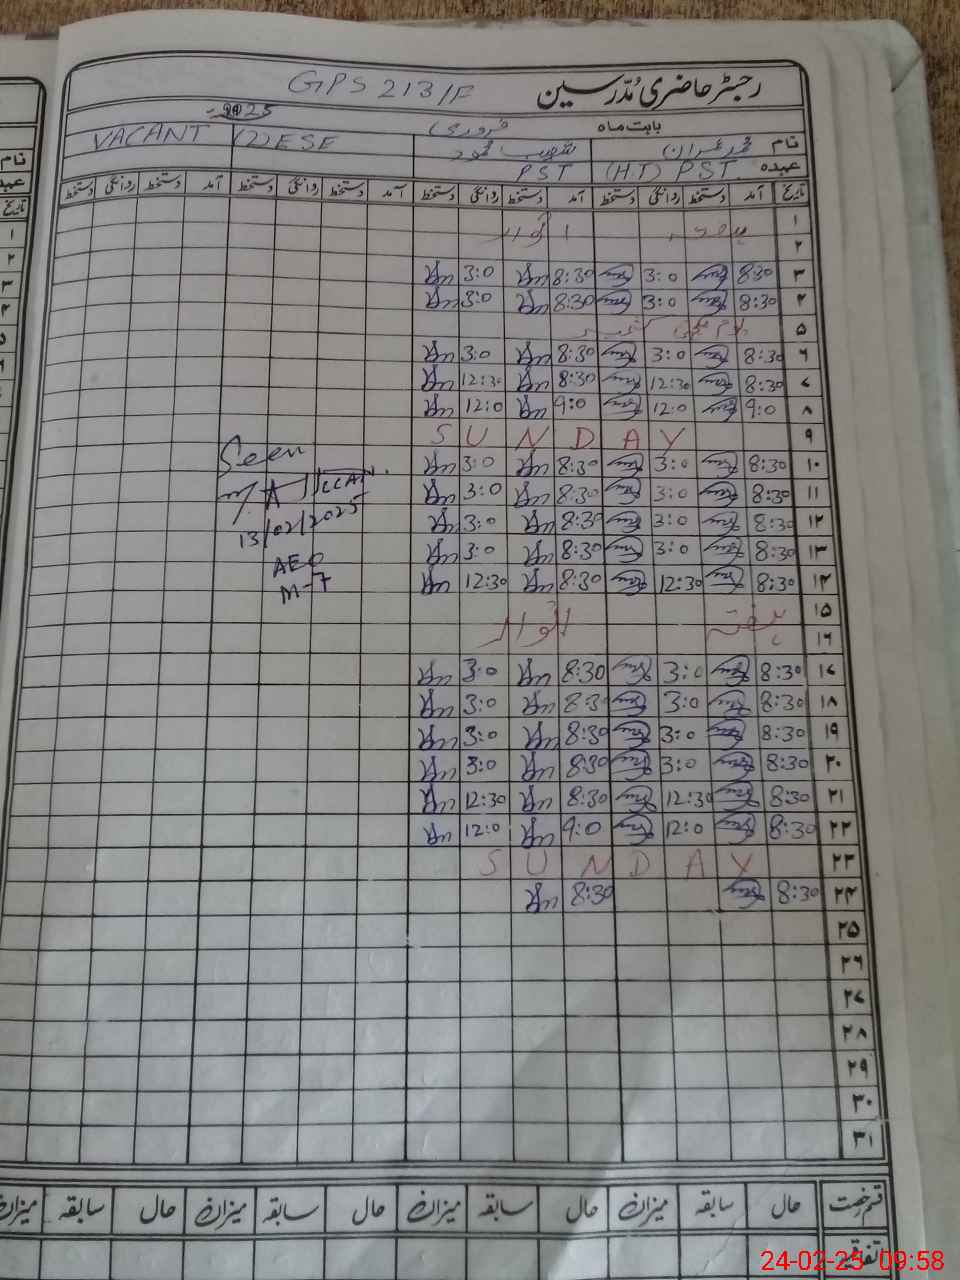 رجسٹر حاضری مُدّرسین GPS 213/F
بابت ماہ فروری 2025
نام محمد عمران شعیب محمود (2) ESE VACANT
عہدہ PST (H.T) PST
تاریخ آمد دستخط روانگی دستخط آمد دستخط روانگی دستخط آمد دستخط روانگی دستخط آمد دستخط روانگی دستخط
۱ ہفتہ اتوار
۲
۳ 8:30 3:0 8:30 3:0
۴ 8:30 3:0 8:30 3:0
۵ یوم یکجہتی کشمیر
۶ 8:30 3:0 8:30 3:0
۷ 8:30 12:30 8:30 12:30
۸ 9:0 12:0 9:0 12:0
۹ SUNDAY
۱۰ 8:30 3:0 8:30 3:0
۱۱ 8:30 3:0 8:30 3:0
۱۲ 8:30 3:0 8:30 3:0
۱۳ 8:30 3:0 8:30 3:0
۱۴ 8:30 12:30 8:30 12:30
Seen
13/02/2025
AEO
M-7
۱۵ ہفتہ اتوار
۱۶
۱۷ 8:30 3:0 8:30 3:0
۱۸ 8:30 3:0 8:30 3:0
۱۹ 8:30 3:0 8:30 3:0
۲۰ 8:30 3:0 8:30 3:0
۲۱ 8:30 12:30 8:30 12:30
۲۲ 8:30 12:0 9:0 12:0
۲۳ SUNDAY
۲۴ 8:30 8:30
۲۵
۲۶
۲۷
۲۸
۲۹
۳۰
۳۱
قسم رخصت حال سابقہ میزان حال سابقہ میزان حال سابقہ میزان حال سابقہ میزان
24-02-25 09:58